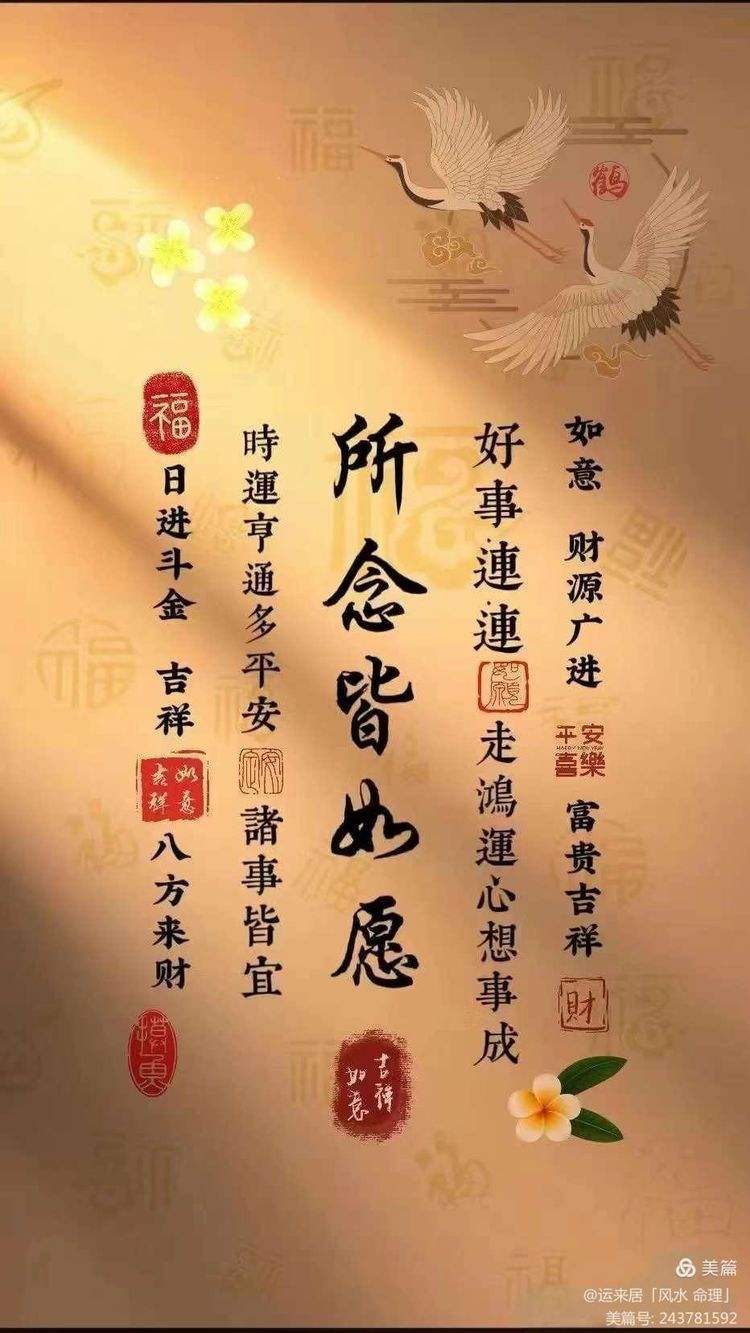 鶴
如意 财源广进
平安喜樂
HAPPY NEW YEAR
富贵吉祥
財
好事連連
如願
走鴻運心想事成
所念皆如愿
吉祥如意
時運亨通多平安
諸事皆宜
福
日进斗金 吉祥
如意吉祥
八方来财
福
美篇
@运来居「风水 命理」
美篇号: 243781592